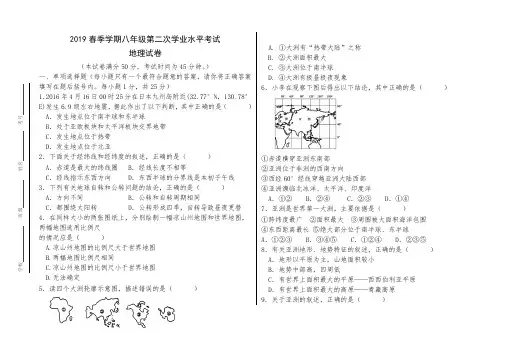 2019 春季学期八年级第二次学业水平考试
地理试卷
(本试卷满分 50 分，考试时间为 45 分钟。)
一、单项选择(每小题只有一个最符合题意的答案，请你将正确答案
填写在题后括号内。每小题 1 分，共 25 分)
1.2016 年 4 月 16 日 00 时 25 分在日本九州岛附近(32.77° N，130.78°
E)发生 6.9 级左右地震，据此作出了以下判断，其中正确的是( )
A．发生地点位于南半球和东半球
B．处于亚欧板块和太平洋板块交界地带
C．发生地点位于热带
D．发生地点位于北美
2．下面关于经纬线和经纬度的叙述，正确的是( )
A．赤道是最大的纬线圈 B．经线长度不相等
C．经线指示东西方向 D．东西半球的分界线是本初子午线
3．下列有关地球自转和公转问题的结论，正确的是( )
A．方向不同 B．公转和自转周期相同
C．都围绕太阳转 D．公转形成四季，自转导致昼夜更替
4．在同样大小的两张图纸上，分别绘制一幅凉山州地图和世界地图，
两幅地图选用比例尺
的情况应是( )
A.凉山州地图的比例尺大于世界地图
B.两幅地图比例尺相同
C.凉山州地图的比例尺小于世界地图
D.无法确定
5．读四个大洲轮廓示意图，描述错误的是( )
A．①大洲有“热带大陆”之称
B．②大洲面积最大
C．③大洲位于南半球
D．④大洲有极昼极夜现象
6．小李在观察下图后得出以下结论，其中正确的是( )
①赤道横穿亚洲东南部
②亚洲位于东洲的西南方向
③西经 60° 经线穿越亚洲大陆西部
④亚洲濒临北冰洋、太平洋、印度洋
A．①② B．②④ C．②③ D．①④
7．亚洲是世界第一大洲，主要依据是( )
①跨纬度最广 ②面积最大 ③周围被大面积海洋包围
④东西距离最长 ⑤绝大部分位于南半球、东半球
A．①②③ B．③④⑤ C．①②④ D．②③⑤
8．有关亚洲地形、地势特征的叙述，正确的是( )
A．地形以平原为主，山地面积较小
B．地势中部高，四周低
C．有世界上面积最大的平原——西西伯利亚平原
D．有世界上面积最大的高原——青藏高原
9．关于亚洲的叙述，正确的是( )